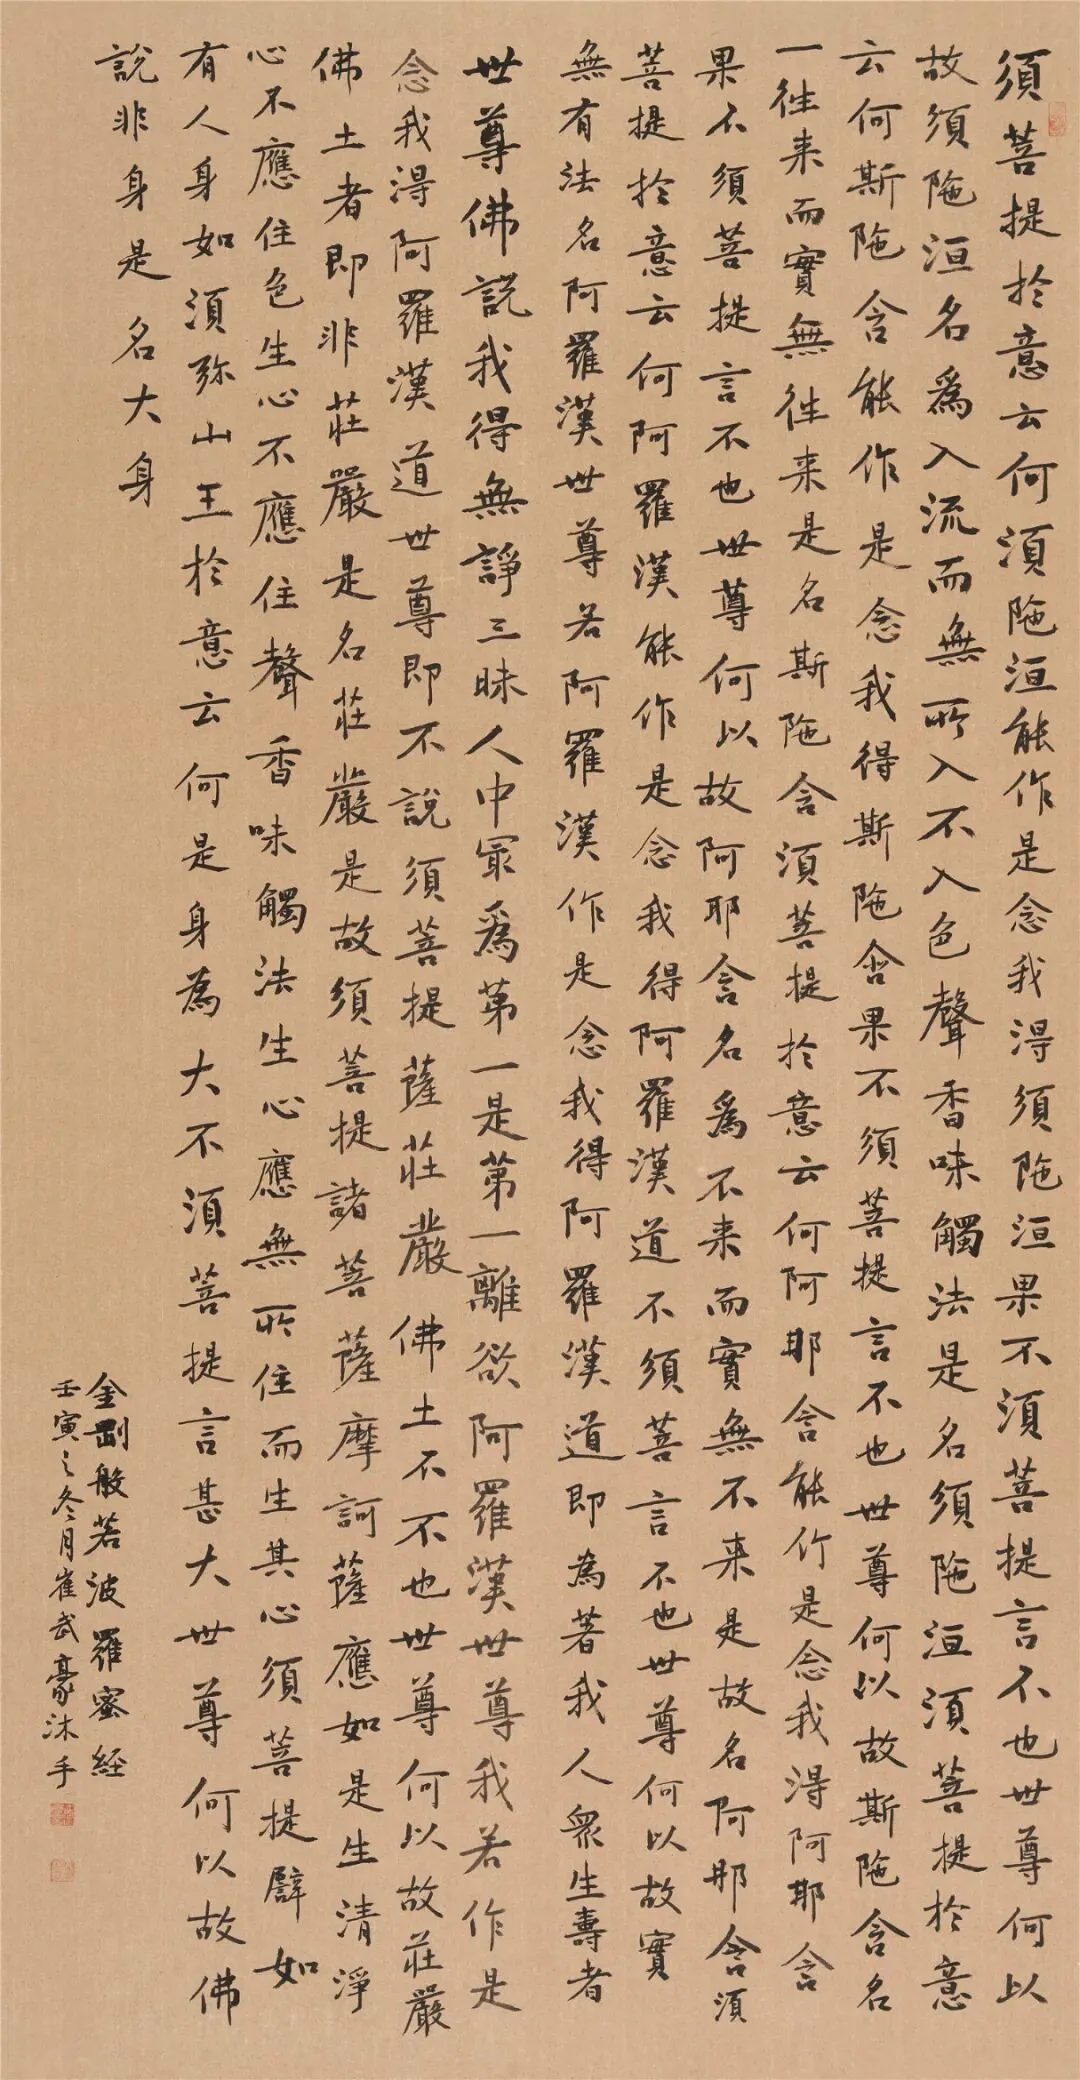 須菩提於意云何須陁洹能作是念我得須陁洹果不須菩提言不也世尊何以
故須陁洹名為入流而無所入不入色聲香味觸法是名須陁洹須菩提於意
云何斯陁含能作是念我得斯陁含果不須菩提言不也世尊何以故斯陁含名
一往来而實無往来是名斯陁含須菩提於意云何阿那含能作是念我得阿那含
果不須菩提言不也世尊何以故阿那含名為不来而實無不来是故名阿那含須
菩提於意云何阿羅漢能作是念我得阿羅漢道不須菩言不也世尊何以故實
無有法名阿羅漢世尊若阿羅漢作是念我得阿羅漢道即為著我人眾生壽者
世尊佛説我得無諍三昧人中冣為苐一是苐一離欲阿羅漢世尊我若作是
念我得阿羅漢道世尊即不說須菩提薩莊嚴佛土不不也世尊何以故莊嚴
佛土者即非莊嚴是名莊嚴是故須菩提諸菩薩摩訶薩應如是生清淨
心不應住色生心不應住聲香味觸法生心應無所住而生其心須菩提譬如
有人身如須弥山王於意云何是身為大不須菩提言甚大世尊何以故佛
說非身是名大身
金剛般若波羅蜜經
壬寅之冬月崔武豪沐手